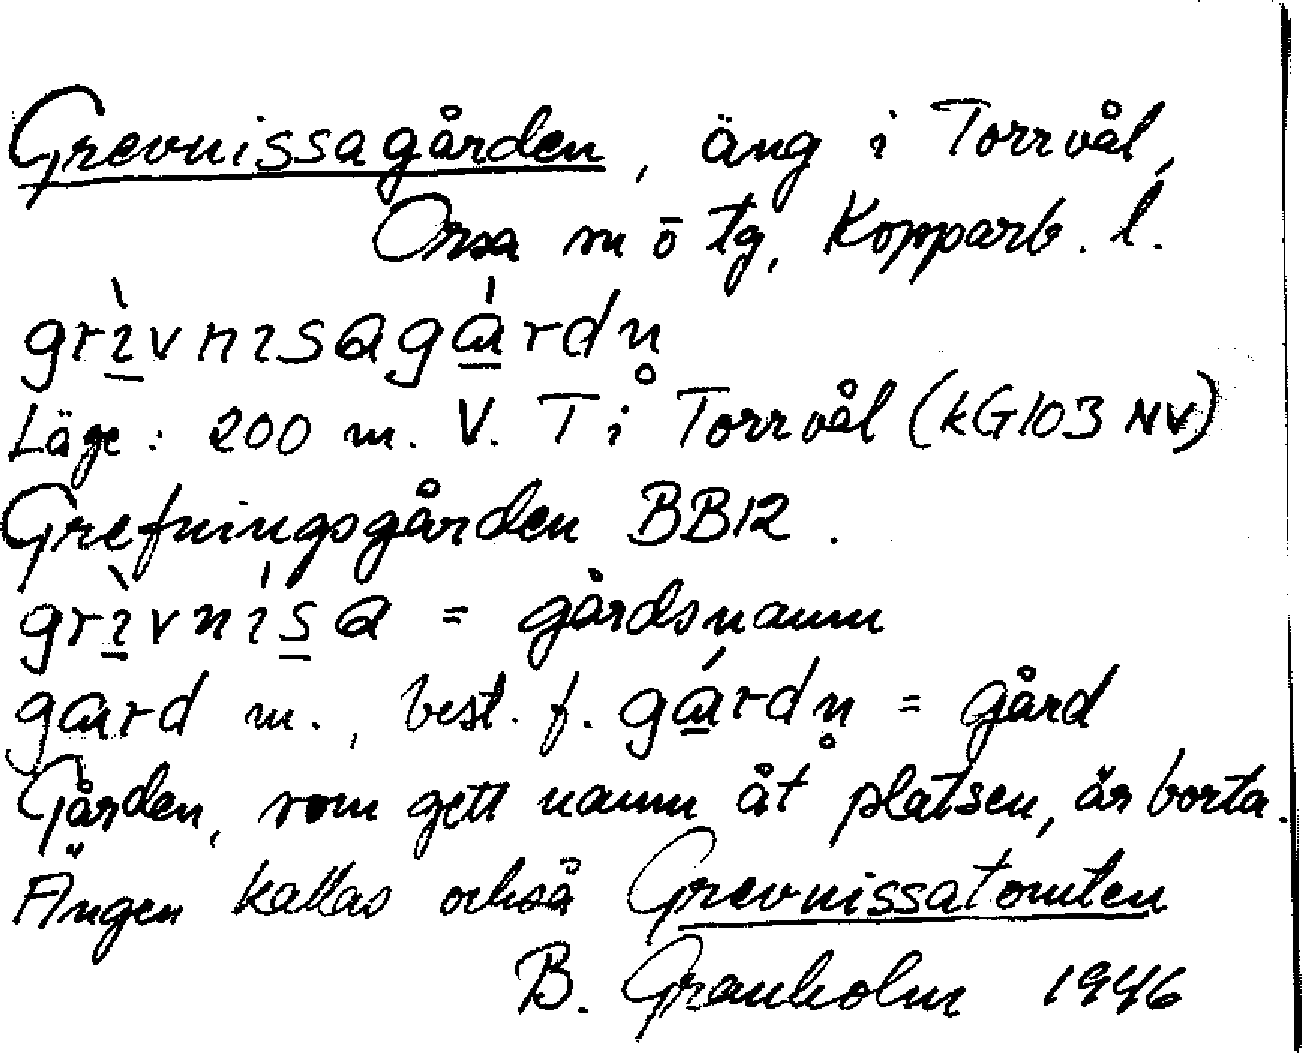 Grevnissagården, äng i Torrvål,
Orsa sn ö tg, Kopparb. l.
grı̱̀vnısaɢgɑ̱́rdn̥
Läge: 200 m. V. T i Torrvål (KG103 NV)
Grefningsgården BB12.
grı̱̀vnı́s̱a = gårdsnamn
gɑrd m., best. f. gɑ̱́rdn̥ = gård
Gården, som gett namn åt platsen, är borta.
Ängen kallas också Grevnissatomten
B. Granholm 1946